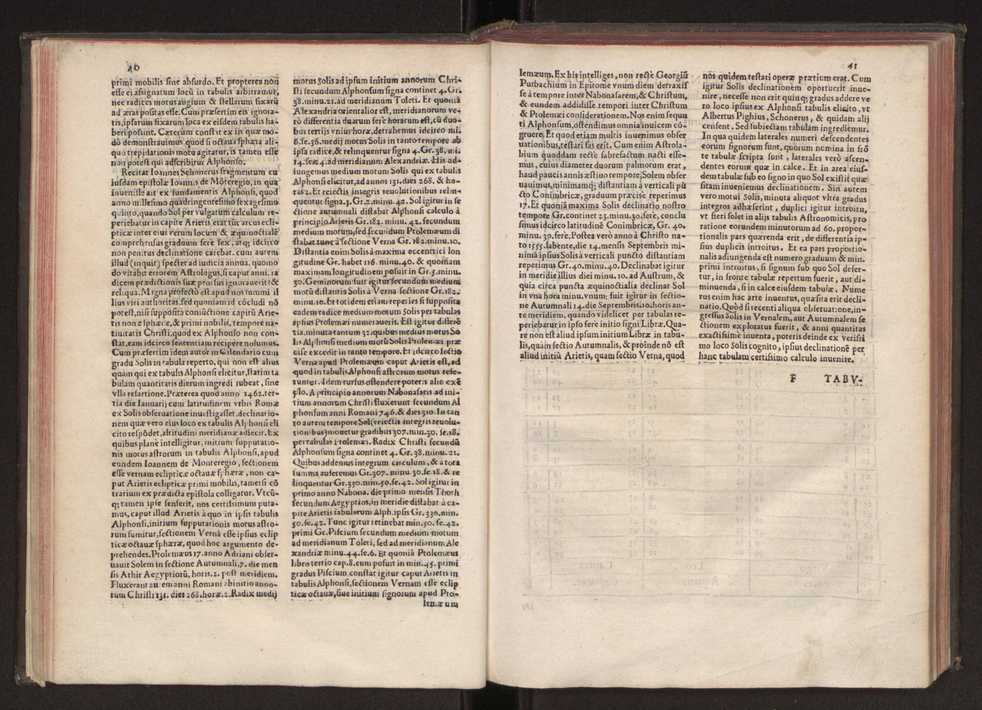 40
primi mobilis sine absurdo. Et propterea non
esse ei assignatum locū in tabulis arbitramur,
nec radices motus augium & stellarum fixarū
ad æras positas esse. Cum præsertim en ignora-
tis, ipsarum fixarum loca ex eisdem tabulis ha-
beri possint. Cæterum constat ex iis quæ mo-
dò demonstrauimus quod si octaua sphæra ali-
quo trepidationis motu agitatur, is tamen esse
non potest qui adscribitur Alphonso.
Recitat Ioannes Schonerus fragmentum cu
iusdam epistolæ Ioannis de Mōteregio, in qua
inuenisse ait ex fundamentis Alphonsi, quod
anno millesimo quadringentesimo sexagesimo
quinto, quando Sol per vulgatum calculum re-
periebatur in capite Arietis erat tūc arcus ecli-
pticæ inter eius verum locum & æquinoctialē
comprehensus graduum ferè sex, atq; idcirco
non penitus declinatione carebat. cum autem
illud (inquit) spectet ad iudicia annua. quomo
do vitabit errorem Astrologus, si caput anni. ra
dicem prædictionis suæ prorsus ignorauerit? &
reliqua. Magna profectò est apud nos huius il
lius viri authoritas. sed quoniam ad cōcludi nō
potest, nisi supposita coniūctione capitū Arie-
tis nonæ sphæræ, & primi nobilis, tempore na-
tiuitatis Christi, quod ex Alphonso non con-
stat, eam idcirco sententiam recipere nolumus.
Cum præsertim idem autor in Calendario cum
gradu Solis in tabula reperto, qui non est alius
quàm qui ex tabulis Alphonsi elicitur, statim ta
bulam quantitatis dierum ingredi iubeat, sine
vlla refartione. Præterea quod anno 1462. ter-
tia die Ianuarij cum latitudinem vrbis Romæ
ex Solis obseruatione inuestigasset. declinario-
nem quæ vero eius loco ex tabulis Alphonsi eli
cito respōdet, altitudini meridianæ adiecit. Ex
quibus planè intelligitur, initium supputatio-
nis motus astrorum in tabulis Alphonsi, apud
eundem Ioannem de Monteregio, sectionem
esse vernam eclipticæ octauæ sphæræ, non ca-
put Arietis eclipticæ primi mobilis, tametsi cō
trarium ex prædicta epistola colligatur. Vtcū-
q; tamen ipse senserit, nos certissimum puta-
mus, caput illud Arietis à quo in ipsis tabulis
Alphonsi, initium supputationis motus astro-
rum sumitur, sectionem Vernā esse ipsius eclip
ticæ octauæ sphæræ, quod hoc argumento de-
prehendes. Ptolemæus 17. anno Adriani obser-
uauit Solem in sectione Autumnali, 7. die men
sis Athir Aegyptiorū, horis. 2. post meridiem.
Fluxerant autem anni Romani ab initio anno-
rum Christi 131. dies 268. horæ. 2. Radix medij
motus Solis ad ipsum initium annorum Chri-
sti secundum Alphonsum signa continet 4. Gr.
38. minu. 21. ad meridianum Toleti. Et quoniā
Alexandria orientalior est, meridianorum ve-
rò differentia duarum ferè horarum est, cū duo-
bus tertijs vnius horæ, detrahemus idcirco mi.
6. se. 36. medij motus Solis in tanto tempore ab
ipsa radice, & relinquetur signa 4. Gr. 38. mi.
14. sec. 4. ad meridianum Alexandriæ. His ad-
iungemus medium motum Solis qui ex tabulis
Alphonsi elicitur, ad annos 131. dies 268. & ho-
ras 2. Et reiectis integris reuolutionibus relin-
quentur signa. 3. Gr. 2. minu. 42. Sol igitur in se
ctione autumnali distabat Alphonsi calculo à
principio Arietis Gr. 182. minu. 42. secundum
medium motum, sed secundum Ptolemæum di
stabat tunc à sectione Verna Gr. 182. minu. 10.
Distantia enim Solis à maxima eccentrici lon
gitudine Gr. habet 116. minu. 40. & quoniam
maximam longitudinem posuit in Gr. 5. minu.
30. Geminorum fuit igitur secundum medium
motū distantia Solis à Verna sectione Gr. 182.
minu. 10. Et totidem etiam reperies si supposita
eadem radice medium motum Solis per tabulas
ipsius Ptolemæi numeraueris. Est igitur differē
tia, minuta tantum 32. quibus medius motus So
lis Alphonsi medium motū Solis Ptolemæi præ
cise excedit in tanto tempore. Et idcirco sectio
Verna apud Ptolemæum caput Arietis est, ad
quod in tabulis Alphonsi astrorum motus refe-
runtur. Idem rursus ostendere poteris alio exē
plo. A principio annorum Nabonasaris ad ini-
tium annorum Christi fluxerunt secundum Al
phonsum anni Romani 746. & dies 310. In tan
to autem tempore Sol (reiectis integris reuolu-
tionibus) mouetur gradibus 307. min. 30. se. 18.
per tabulas Ptolemæi. Radix Christi secundū
Alphonsum signa continet 4. Gr. 38. minu. 21.
Quibus addemus integrum circulum, & à tota
summa auferemus Gr. 307. minu. 30. se. 18. & re
linquentur Gr. 330. min. 50. se. 42. Sol igitur in
primo anno Nabona. die primo mensis Thoth
secundum Aegyptios, in meridie distabat à ca-
pite Arietis tabularum Alph. ipsis Gr. 330. min.
50. se. 42. Tunc igitur retinebat min. 50. se. 42.
primi Gr. Piscium secundum medium motum
ad meridianum Toleti, sed ad meridianum Ale
xandriæ minu. 44. se. 6. Et quoniā Ptolemæus
libro tertio cap. 8. eum posuit in min. 45. primi
gradus Piscium constat igitur caput Arietis in
tabulis Alphonsi, sectionem Vernam esse eclip
ticæ octauæ, siue initium signorum apud Pto-
lemæum
41
lemæum. Ex his intelliges, non rectè Georgiū
Purbachium in Epitome vnum diem detraxis
se à tempore inter Nabonasarem, & Christum,
& eundem addidisse tempori inter Christum
& Ptolemæi considerationem. Nos enim sequu
ti Alphonsum, ostendimus omnia inuicem cō
gruere. Et quod etiam multis inuenimus obser
uationibus, testari fas erit. Cum enim Astrola-
bium quoddam rectè fabrefactum nacti esse-
mus, cuius diameter duorum palmorum erat,
haud paucis annis æstiuo tempore, Solem obser
uauimus, minimamq; distantiam à verticali pū
cto Conimbricæ, graduum præcisè reperimus
17. Et quoniā maxima Solis declinatio nostro
tempore Gr. continet 23. minu. 30. ferè, conclu
simus idcirco latitudinē Conimbricæ, Gr. 40.
minu. 30. ferè. Postea verò anno à Christo na-
to 1555. labente, die 14. mensis Septembris mi-
nimā ipsius Solis à verticali puncto distantiam
reperimus Gr. 40. minu. 40. Declinabat igitur
in meridie illius diei minu. 10. ad Austrum, &
quia circa puncta æquinoctialia declinat Sol
in vna hora minu. vnum, fuit igitur in sectio-
ne Autumnali 14. die Septembris 10. horis an-
te meridiem, quando videlicet per tabulas re-
periebatur in ipso ferè initio signi Libræ. Qua-
re non est aliud ipsum initium Libræ in tabu-
lis, quàm sectio Autumnalis, & proinde nō est
aliud initiū Arietis, quam sectio Verna, quod
nos quidem testati operæ prætium erat. Cum
igitur Solis declinationem oportuerit inue-
nire, necesse non erit quinq; gradus addere ve
ro loco ipsius ex Alphonsi tabulis elicito, vt
Albertus Pighius, Schonerus, & quidam alij
censent. Sed subiectam tabulam ingrediemur.
In qua quidem laterales numeri descendentes
eorum signorum sunt, quorum nomina in frō
te tabulæ scripta sunt, laterales verò ascen-
dentes eorum quæ in calce. Et in area eius-
dem tabulæ sub eo signo in quo Sol existit quæ
sitam inueniemus declinationem. Sin autem
vero motui Solis, minuta aliquot vltra gradus
integros adhæserint, duplici igitur introitu,
vt fieri solet in alijs tabulis Astronomicis, pro
ratione eorundem minutorum ad 60. propor-
tionalis pars quærenda erit, de differentia ip-
sius duplicis introitus. Et ea pars proportio-
nalis adiungenda est numero graduum & min.
primi introitus, si signum sub quo Sol defer-
tur, in fronte tabulæ repertum fuerit, aut di-
minuenda, si in calce eiusdem tabulæ. Nume
rus enim hac arte inuentus, quæsita erit decli-
natio. Quòd si recenti aliqua obseruatione, in-
gressus Solis in Vernalem, aut Autumnalem se
ctionem exploratus fuerit, & anni quantitas
exactissimè inuenta, poteris deinde ex verissi
mo loco Solis cognito, ipsius declinationē per
hanc tabulam certissimo calculo inuenire.
F TABV-